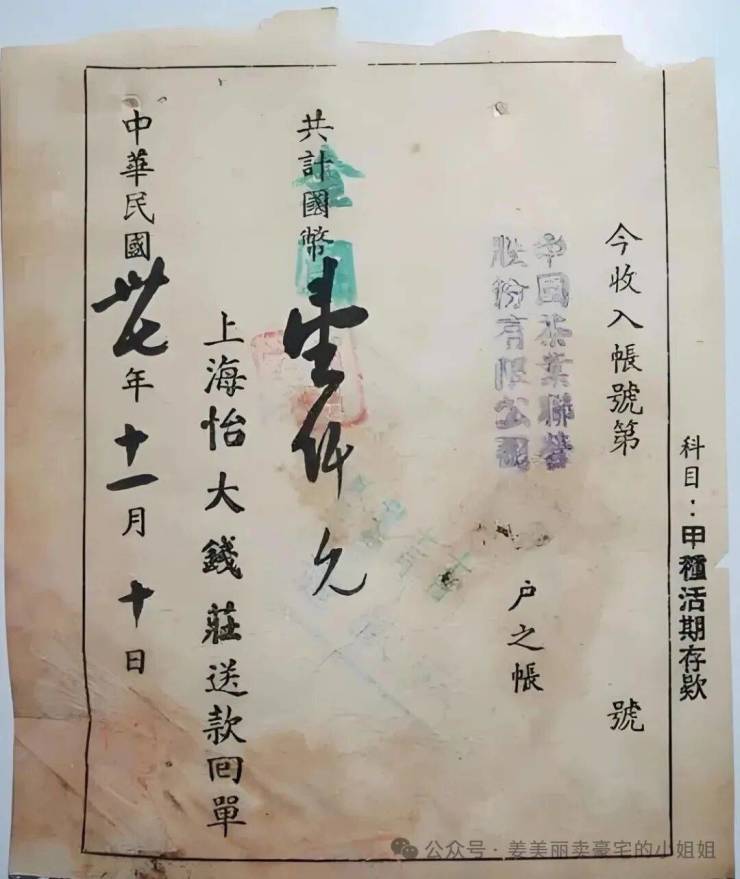 科目：甲種活期存欵
今收入帳號第 號
中國茶葉聯營
股份有限公司
户之帳
共計國幣壹仟元
金
上海怡大錢莊送款回單
中華民國卅七年十一月十日
公众号·姜美丽卖豪宅的小姐姐